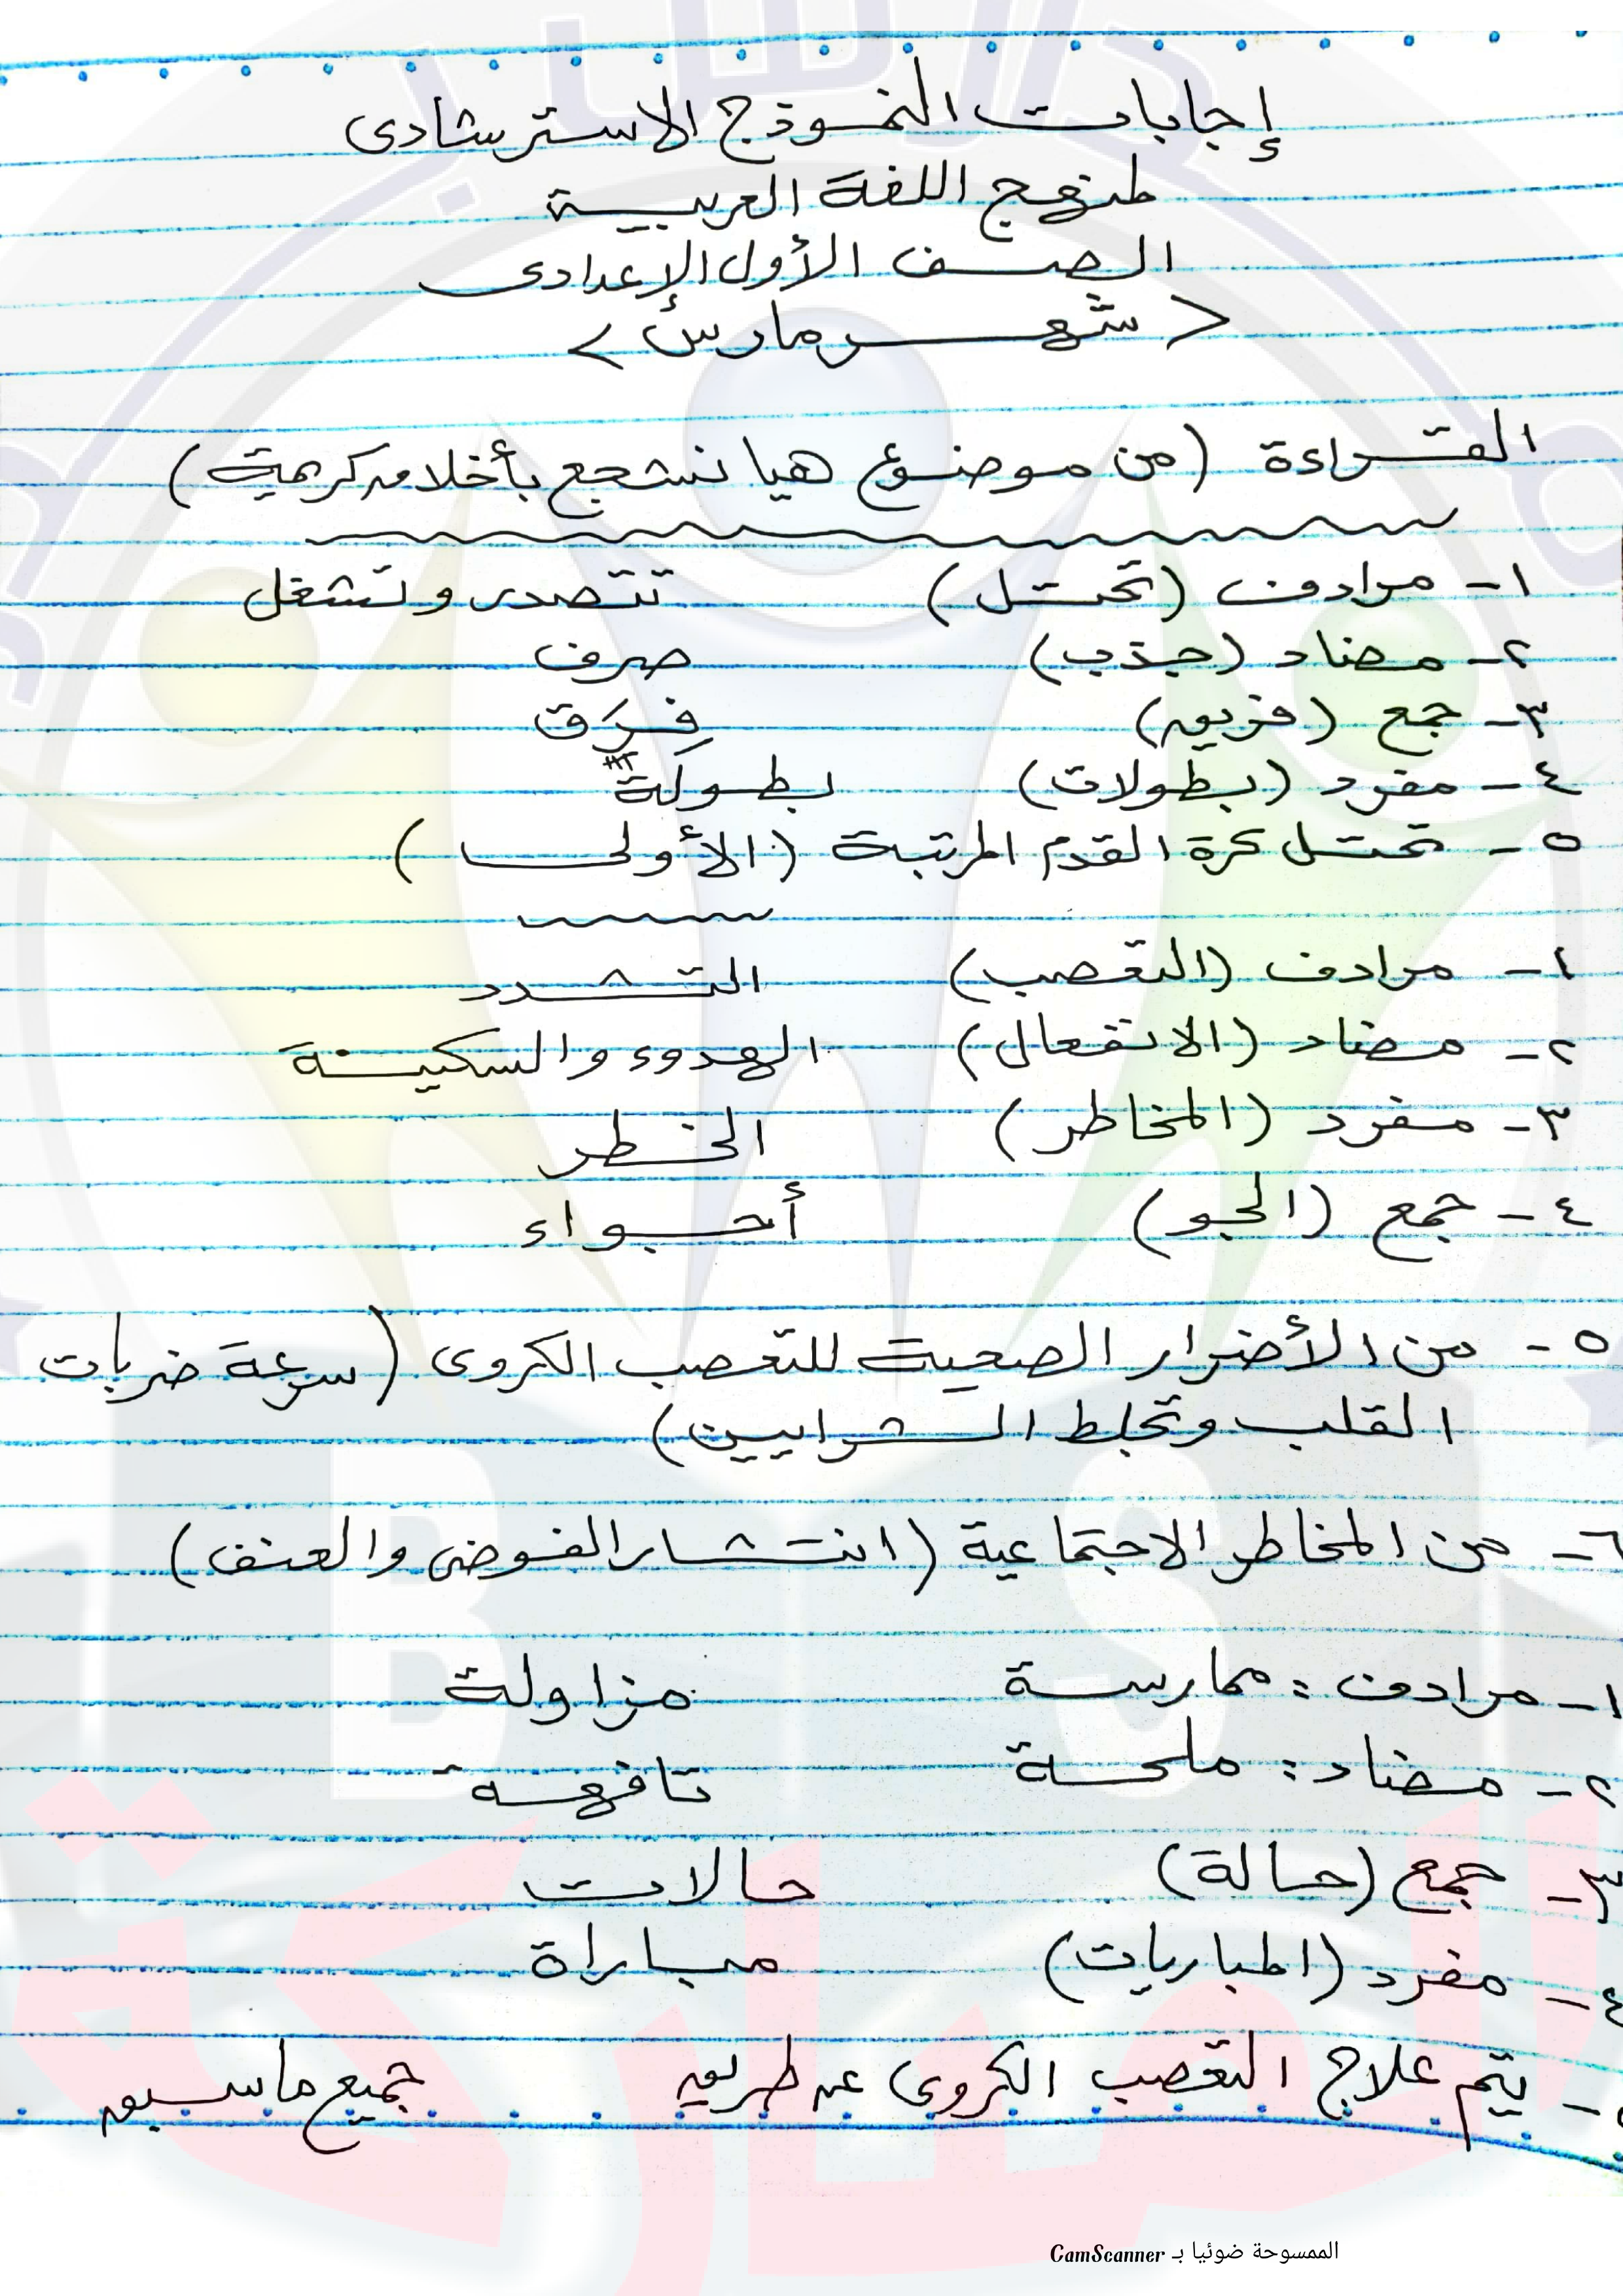 إجابات النموذج الاسترشادى
لمنهج اللغة العربية
الصف الأول الإعدادى
< شهر مارس >
القراءة (من موضوع هيا نشجع بأخلاق كريمة)
١- مرادف (تحتل) تتصدر وتشغل
٢- مضاد (جذب) صرف
٣- جمع (فريق) فِرَق
٤- مفرد (بطولات) بطولة
٥- تحتل كرة القدم المرتبة (الأولى)
١- مرادف (التعصب) التشدد
٢- مضاد (الانفعال) الهدوء والسكينة
٣- مفرد (المخاطر) الخطر
٤- جمع (الجو) أجواء
٥- من الأضرار الصحية للتعصب الكروى (سرعة ضربات
القلب وتجلط الشرايين)
٦- من المخاطر الاجتماعية (انتشار الفوضى والعنف)
١- مرادف: ممارسة مزاولة
٢- مضاد: ملحة تافهة
٣- جمع (حالة) حالات
٤- مفرد (المباريات) مباراة
٥- يتم علاج التعصب الكروى عن طريق جميع ما سبق
الممسوحة ضوئيا بـ CamScanner